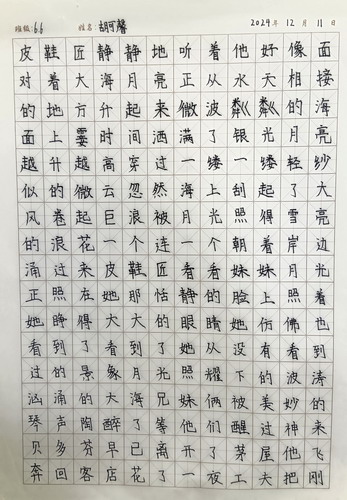 班级:6.6 姓名:胡可馨 2024年12月11日
皮鞋匠静静地听着他好像面
对着大海月亮正从水天相接
的地方升起来微波粼粼的海
面上霎时间洒满了银光月亮
越升越高穿过一缕一缕轻纱
似的微云忽然海上刮起了大
风卷起巨浪被月光照得雪亮
的浪花一个连一个朝着岸边
涌过来皮鞋匠看看妹妹月光
正照在她那恬静的脸上照着
她睁得大大的眼睛她仿佛也
看到了看到了她从没有看到
过的景象月光照耀下的波涛
汹涌的大海兄妹俩被美妙的
琴声陶醉了等他们醒过神来
贝多芬早已离开了茅屋他飞
奔回客店花了一夜工夫把刚